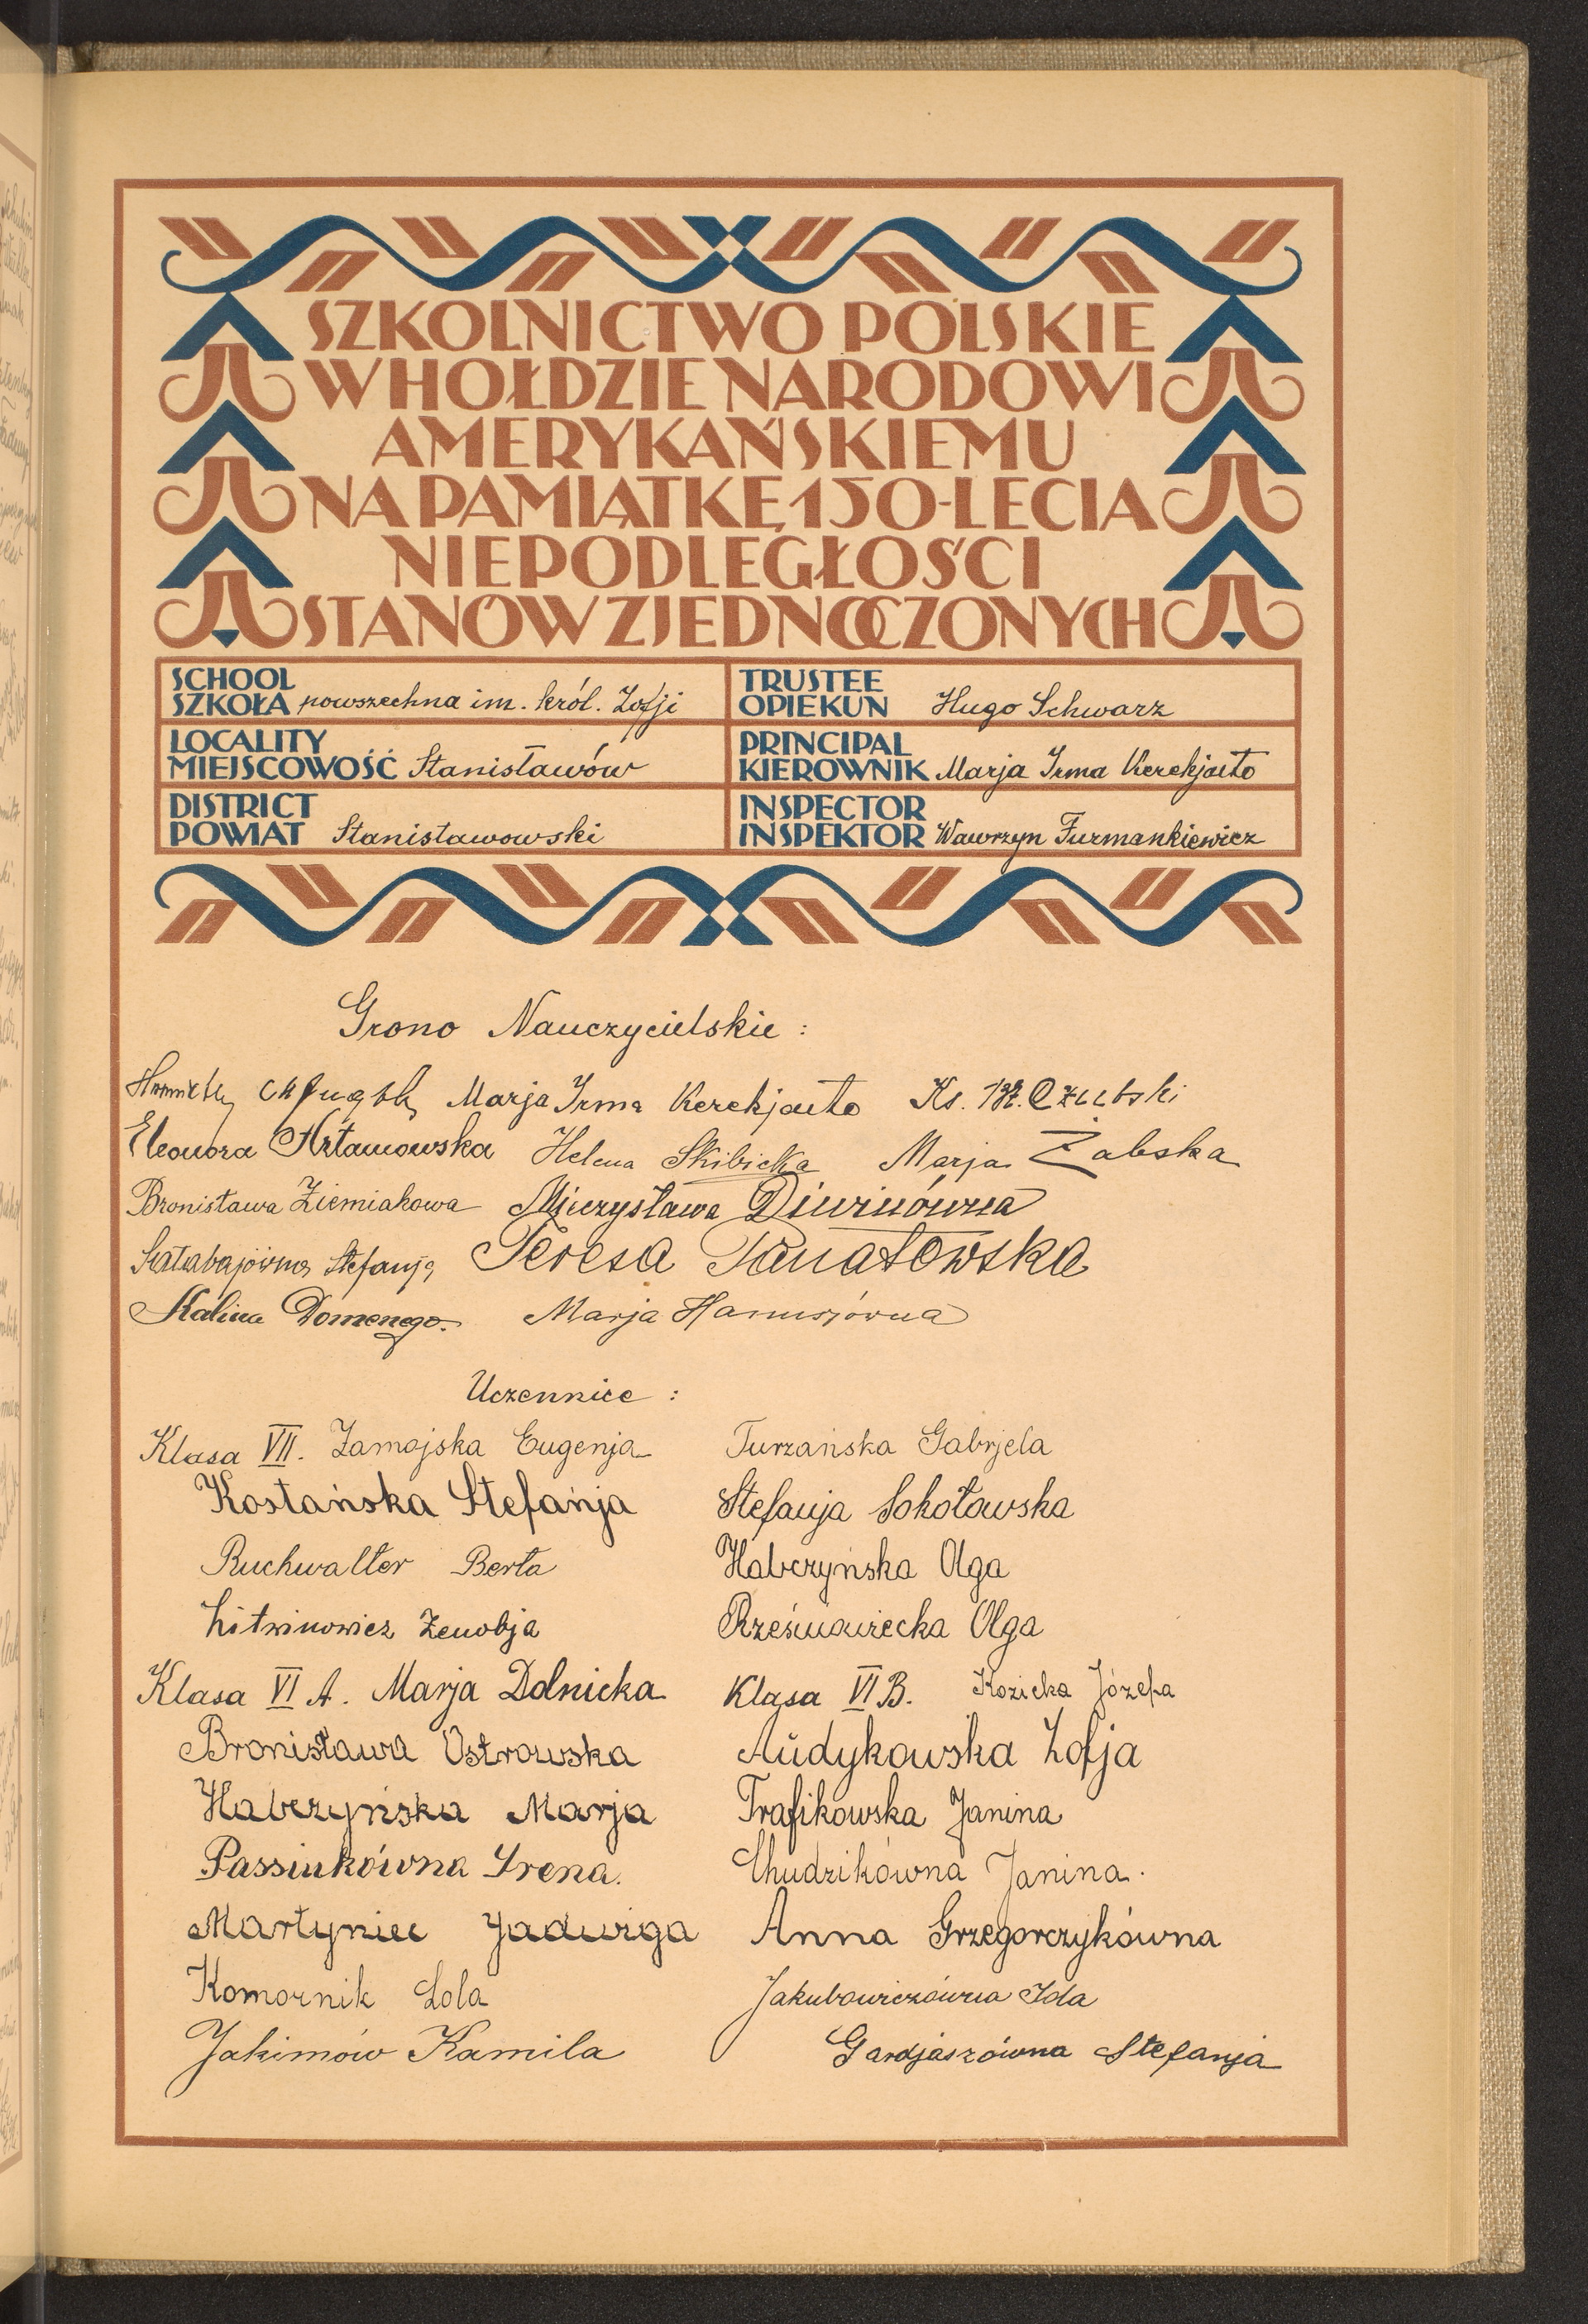 SZKOLNICTWO POLSKIE
W HOŁDZIE NARODOWI
AMERYKAŃSKIEMU
NA PAMIĄTKĘ 150-LECIA
NIEPODLEGŁOŚCI
STANÓW ZJEDNOCZONYCH
SCHOOL
SZKOŁA powszechna im. król. Zofji
TRUSTEE
OPIEKUN Hugo Schwarz
LOCALITY
MIEJSCOWOŚĆ Stanisławów
PRINCIPAL
KIEROWNIK Marja Irma Kerekjarto
DISTRICT
POWIAT Stanisławowski
INSPECTOR
INSPEKTOR Wawrzyn Furmankiewicz
Grono Nauczycielskie :
Marja Irma Kerekjarto Ks. Czubski
Eleonora Helena Skibicka Marja Żabska
Bronisława Ziemiakowa Mieczysława
Stefanja Teresa Panatowska
Kalina Domenego. Marja Hanusiówna
Uczennice :
Klasa VII. Zamojska Eugenja Turzańska Gabrjela
Kostańska Stefanja Stefanja Sokołowska
Ruchwalter Berta Habczyńska Olga
Litwinowicz Zenobja Olga
Klasa VI A. Marja Dolnicka Klasa VI B. Kozicka Józefa
Bronisława Ostrowska Audykowska Zofja
Habczyńska Marja Trafikowska Janina
Passiukówna Irena. Chudzikówna Janina.
Martyniec Jadwiga Anna Grzegorczykówna
Komornik Lola Jakubowiczówna Ida
Jakimów Kamila Gardjaszówna Stefanja